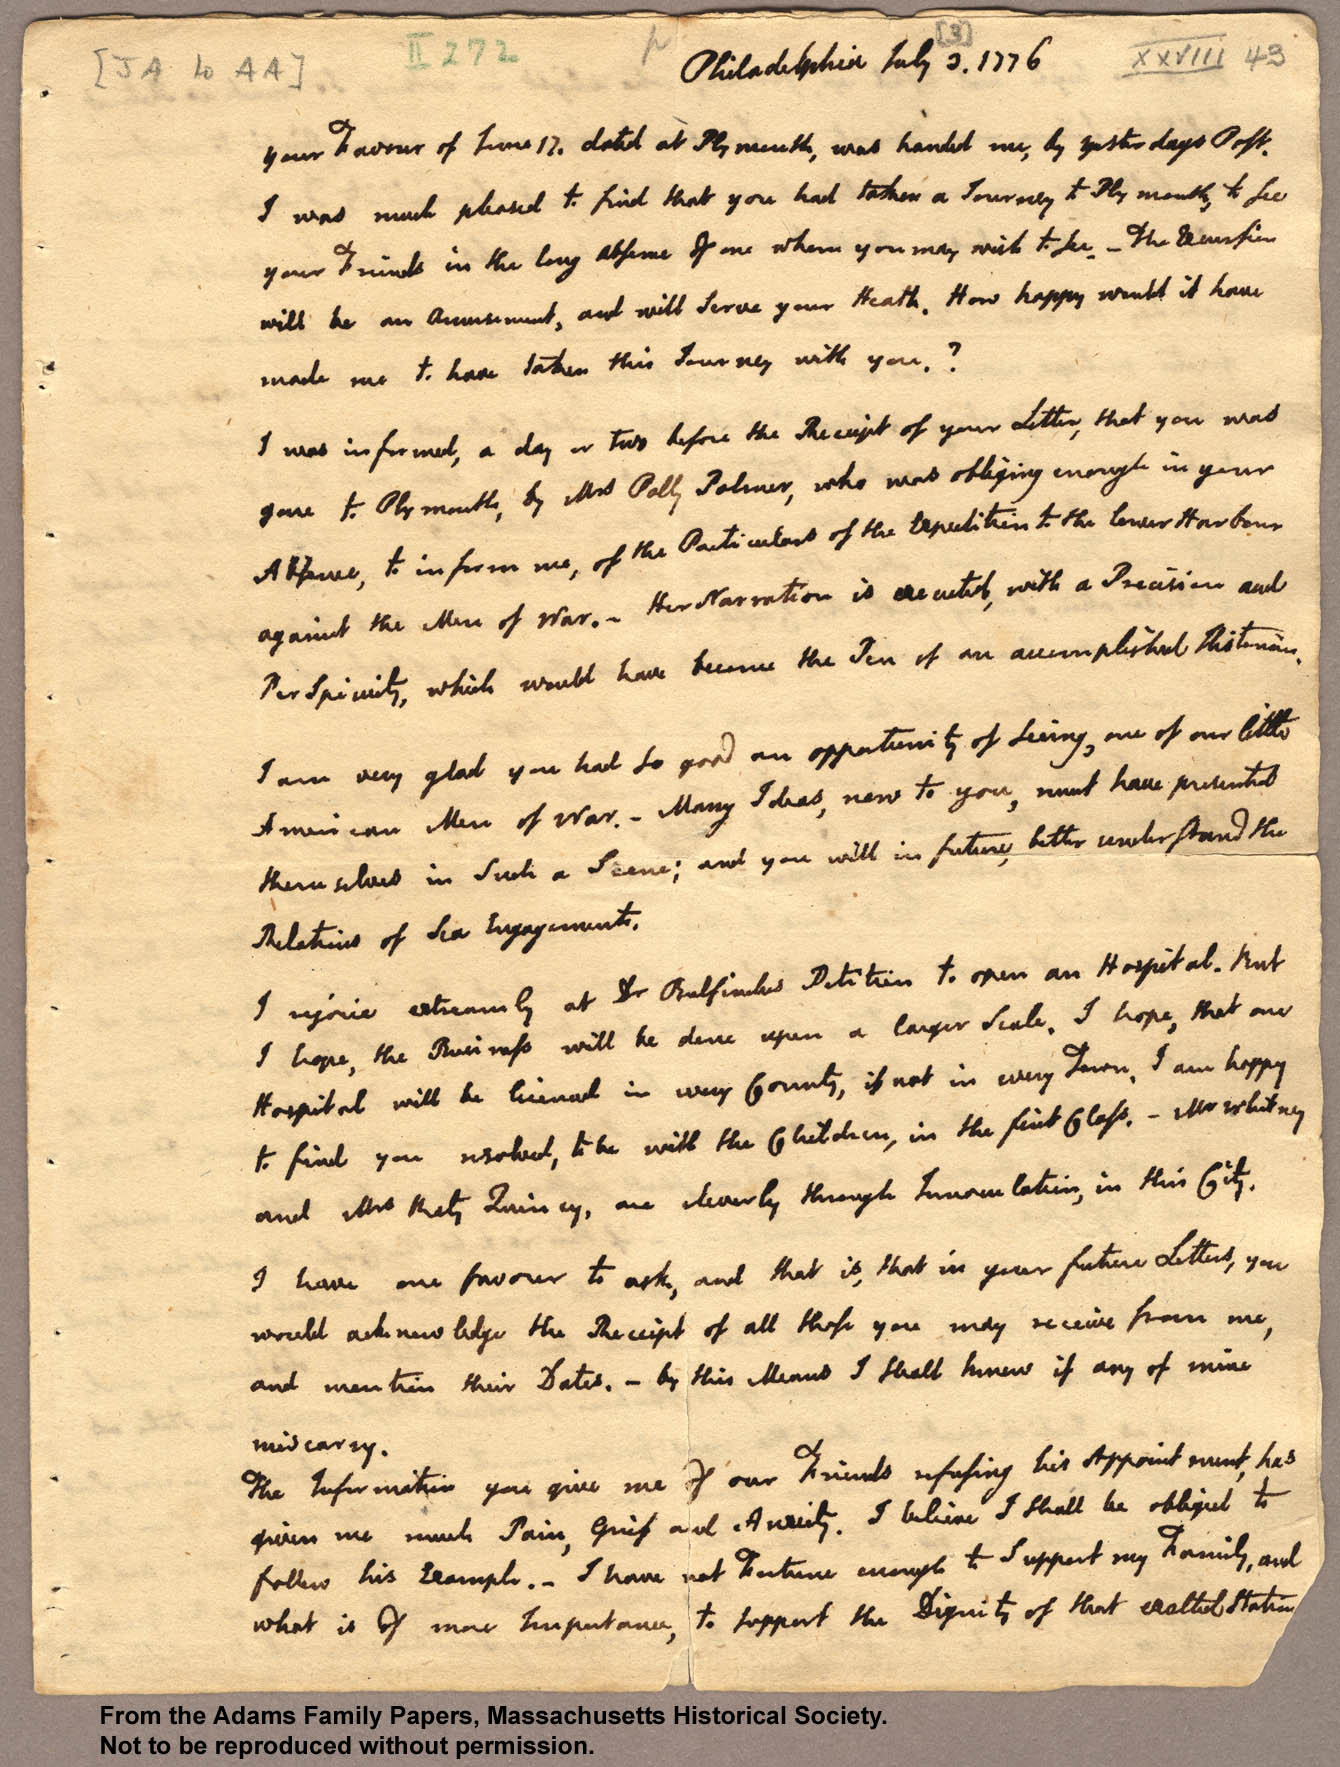 [JA to AA]
II 272
[3]
XXVIII 43
Philadelphia July 3. 1776
your Favour of June 17. dated at Plymouth, was handed me, by yesterdays Post.
I was much pleased to find that you had taken a Journey to Plymouth, to see
your Friends in the long Absence of one whom you may wish to see. – The Excursion
will be an Amusement, and will serve your Heath. How happy would it have
made me to have taken this Journey with you. ?
I was informed, a day or two before the Receipt of your Letter, that you was
gone to Plymouth, by Mrs Polly Palmer, who was obliging enough in your
Absence, to inform me, of the Particulars of the Expedition to the lower Harbour
against the Men of War. – Her Narration is executed, with a Precision and
Perspicuity, which would have become the Pen of an accomplished Historian.
I am very glad you had so good an opportunity of seeing, one of our little
American Men of War. – Many Ideas, new to you, must have presented
themselves in such a Scene; and you will in future, better understand the
Relations of Sea Engagements.
I rejoice extreamly at Dr Bulfinches Petition to open an Hospital. But
I hope, the Business will be done upon a larger Scale. I hope, that one
Hospital will be licensed in every County, if not in every Town. I am happy
to find you resolved, to be with the Children, in the first Class. – Mr Whitney
and Mrs Katy Quincy, are cleverly through Innoculation, in this City.
I have one favour to ask, and that is, that in your future Letters, you
would acknowledge the Receipt of all those you may receive from me,
and mention their Dates. – by this Means I shall know if any of mine
miscarry.
The Information you give me of our Friends refusing his Appointment, has
given me much Pain, Grief and Anxiety. I believe I shall be obliged to
follow his Example. – I have not Fortune enough to support my Family, and
what is of more Importance, to support the Dignity of that exalted Station
From the Adams Family Papers, Massachusetts Historical Society.
Not to be reproduced without permission.